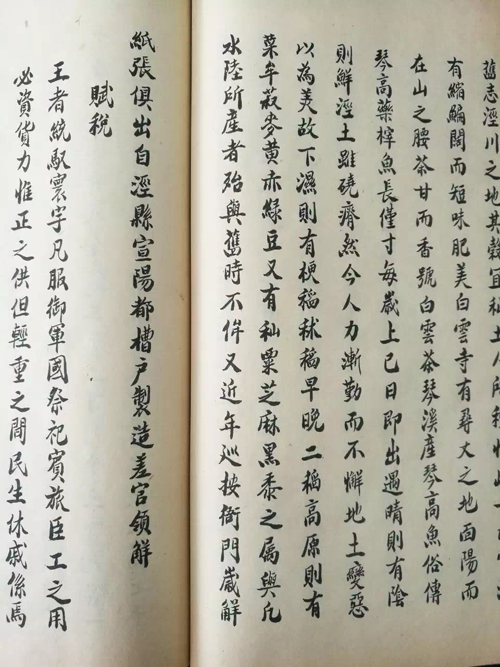 舊志涇川之地其穀宜
有縮鱐闊而短味肥美白雲寺有尋丈之地面陽而
在山之腰茶甘而香號白雲茶琴溪產琴高魚俗傳
琴高藥滓魚長僅寸每歲上巳日即出遇晴則有陰
則鮮涇土雖磽瘠然今人力漸勤而不懈地土變惡
以為美故下濕則有粳稻秫稻早晚二稻高原則有
菜牟菽麥黃赤綠豆又有秈粟芝麻黑黍之屬與凡
水陸所產者殆與舊時不侔又近年巡按衙門歲解
紙張俱出自涇縣宣陽都槽戶製造差官領解
賦稅
王者統馭寰宇凡服御軍國祭祀賓旅臣工之用
必資貨力惟正之供但輕重之間民生休戚係焉